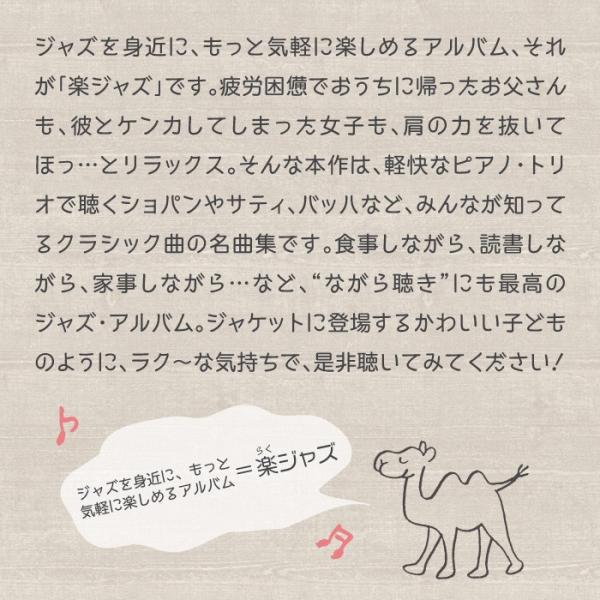 ジャズを身近に、もっと気軽に楽しめるアルバム、それ
が「楽ジャズ」です。疲労困憊でおうちに帰ったお父さん
も、彼とケンカしてしまった女子も、肩の力を抜いて
ほっ…とリラックス。そんな本作は、軽快なピアノ・トリ
オで聴くショパンやサティ、バッハなど、みんなが知って
るクラシック曲の名曲集です。食事しながら、読書しな
がら、家事しながら…など、“ながら聴き”にも最高の
ジャズ・アルバム。ジャケットに登場するかわいい子ども
のように、ラク〜な気持ちで、是非聴いてみてください!
ジャズを身近に、もっと
気軽に楽しめるアルバム
=
らく
楽ジャズ